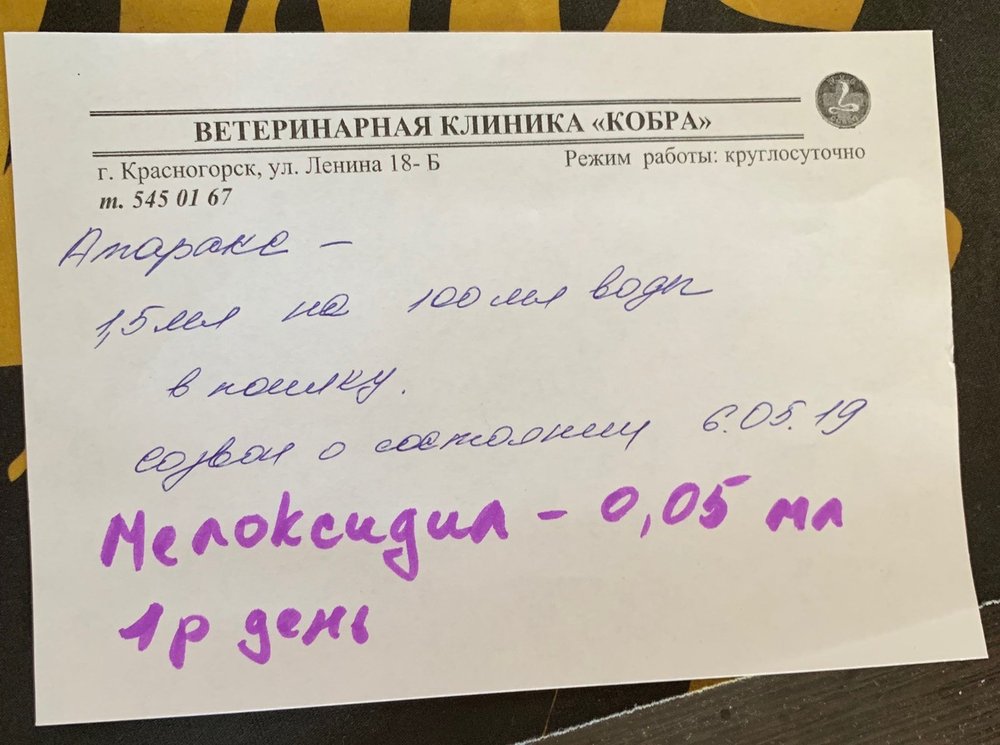 ВЕТЕРИНАРНАЯ КЛИНИКА «КОБРА»
г. Красногорск, ул. Ленина 18- Б Режим работы: круглосуточно
т. 545 01 67
Атаракс –
1,5мл на 100мл воды
в поилку.
созвон о состоянии 6.05.19
Мелоксидил – 0,05 мл
1р день